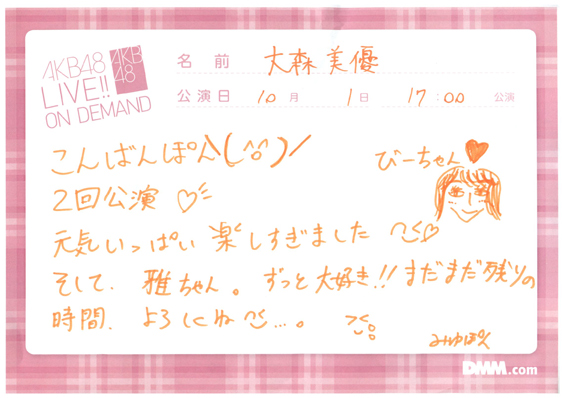 AKB48
LIVE!!
ON DEMAND
AKB
48
名前 大森美優
公演日 10月 1日 17:00 公演
こんばんぽん\(^o^)/
びーちゃん♥
2回公演 ♡
元気いっぱい 楽しすぎました
そして、雅ちゃん。ずっと大好き!! まだまだ残りの
時間、よろしくね ...。
みゆぽん
DMM.com